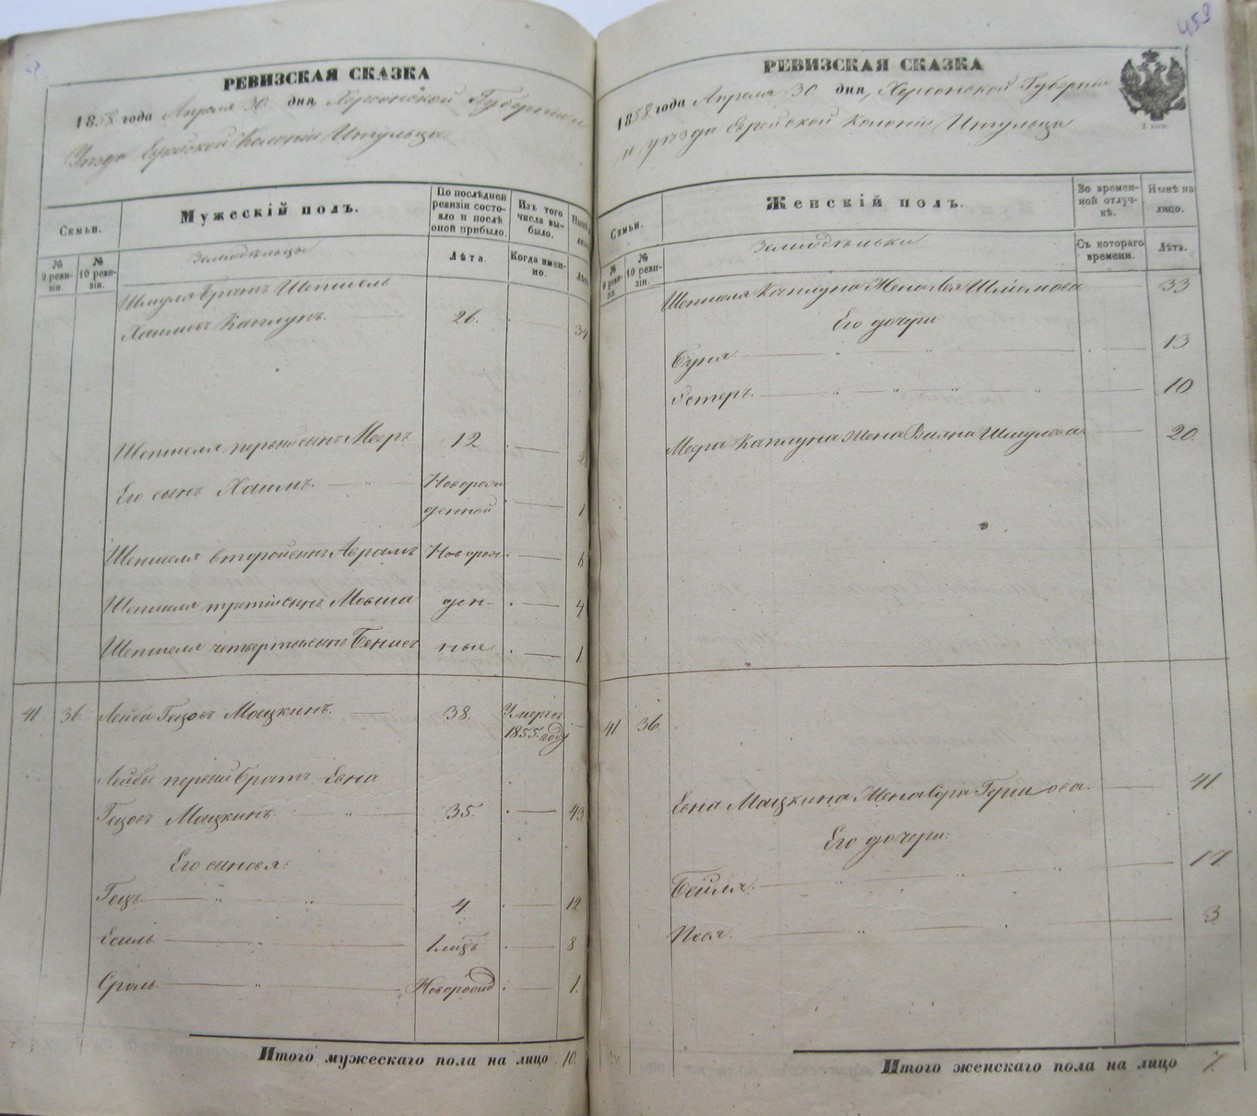 РЕВИЗСКАЯ СКАЗКА
1858 года Апреля 30 дня, Херсонской Губерніи и
Уезда Еврейской Колоніи Ингульца
Семьи.
№ 9 ревизіи.
№ 10 ревизіи.
Мужескій полъ.
По послѣдней ревизіи состояло и послѣ оной прибыло.
Изъ того числа выбыло.
Лѣта.
Когда именно.
Земледѣльцы
Шмуля братъ Шепшель
Хаимовъ Каплунъ. 26.
Шепшеля первый сынъ Мееръ 12
Его сынъ Хаимъ. Новорож
денной 1
Шепшеля второй сынъ Абрамъ Новорож 6
Шепшеля третій сынъ Мовша ден- 4
Шепшеля четвертый сынъ ные 1.
41 36 Лейба Гецовъ Моцкинъ. 38. Умеръ въ
1855 году
Лейбы первый братъ
Гецовъ Моцкинъ 35.
Его сыновья.
Гецъ 4 12
1 8
Сроль Новорожд 1.
Итого мужескаго пола на лицо 10.
453
РЕВИЗСКАЯ СКАЗКА
1858 года Апреля 30 дня, Херсонской Губерніи
и уезда Еврейской Колоніи Ингульца
2 коп.
Семьи.
№ 9 ревизіи.
№ 10 ревизіи.
Женскій полъ.
Во временной отлучкѣ.
Нынѣ на лицо.
Съ котораго времени.
Лѣта.
Земледѣльки
Шепшеля Каплуна Жена 33
Его дочери
Буня 13
Эстеръ. 10
Меера Каплуна жена Шмулева 20
41 36.
Моцкина Жена 41
Его дочери.
Бейля. 17
Песя. 3
Итого женскаго пола на лицо 7.